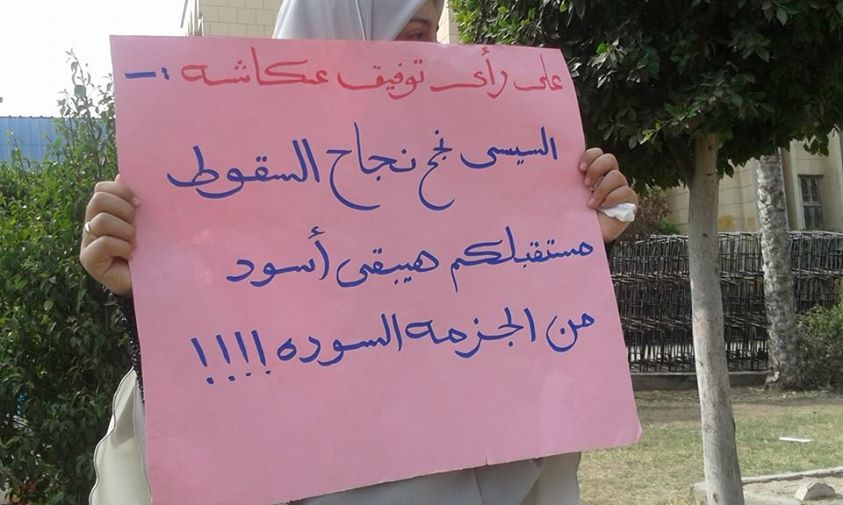 على رأى توفيق عكاشه :-
السيسى نجح نجاح السقوط
مستقبلكم هيبقى أسود
من الجزمه السوده !!!!